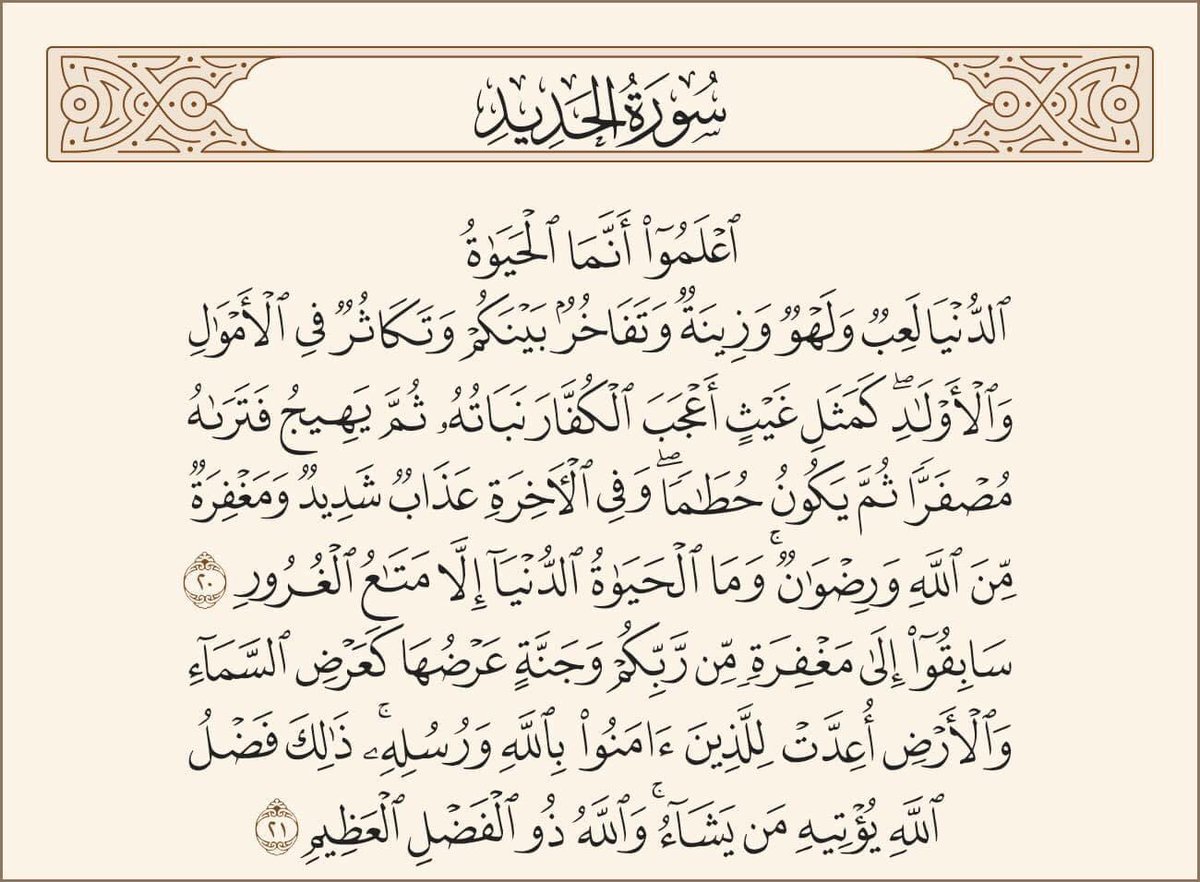 سُورَةُ الحَدِيدِ
ٱعۡلَمُوٓاْ أَنَّمَا ٱلۡحَيَوٰةُ
ٱلدُّنۡيَا لَعِبٞ وَلَهۡوٞ وَزِينَةٞ وَتَفَاخُرُۢ بَيۡنَكُمۡ وَتَكَاثُرٞ فِي ٱلۡأَمۡوَٰلِ
وَٱلۡأَوۡلَٰدِۖ كَمَثَلِ غَيۡثٍ أَعۡجَبَ ٱلۡكُفَّارَ نَبَاتُهُۥ ثُمَّ يَهِيجُ فَتَرَىٰهُ
مُصۡفَرّٗا ثُمَّ يَكُونُ حُطَٰمٗاۖ وَفِي ٱلۡأٓخِرَةِ عَذَابٞ شَدِيدٞ وَمَغۡفِرَةٞ
مِّنَ ٱللَّهِ وَرِضۡوَٰنٞۚ وَمَا ٱلۡحَيَوٰةُ ٱلدُّنۡيَآ إِلَّا مَتَٰعُ ٱلۡغُرُورِ ٢٠
سَابِقُوٓاْ إِلَىٰ مَغۡفِرَةٖ مِّن رَّبِّكُمۡ وَجَنَّةٍ عَرۡضُهَا كَعَرۡضِ ٱلسَّمَآءِ
وَٱلۡأَرۡضِ أُعِدَّتۡ لِلَّذِينَ ءَامَنُواْ بِٱللَّهِ وَرُسُلِهِۦۚ ذَٰلِكَ فَضۡلُ
ٱللَّهِ يُؤۡتِيهِ مَن يَشَآءُۚ وَٱللَّهُ ذُو ٱلۡفَضۡلِ ٱلۡعَظِيمِ ٢١